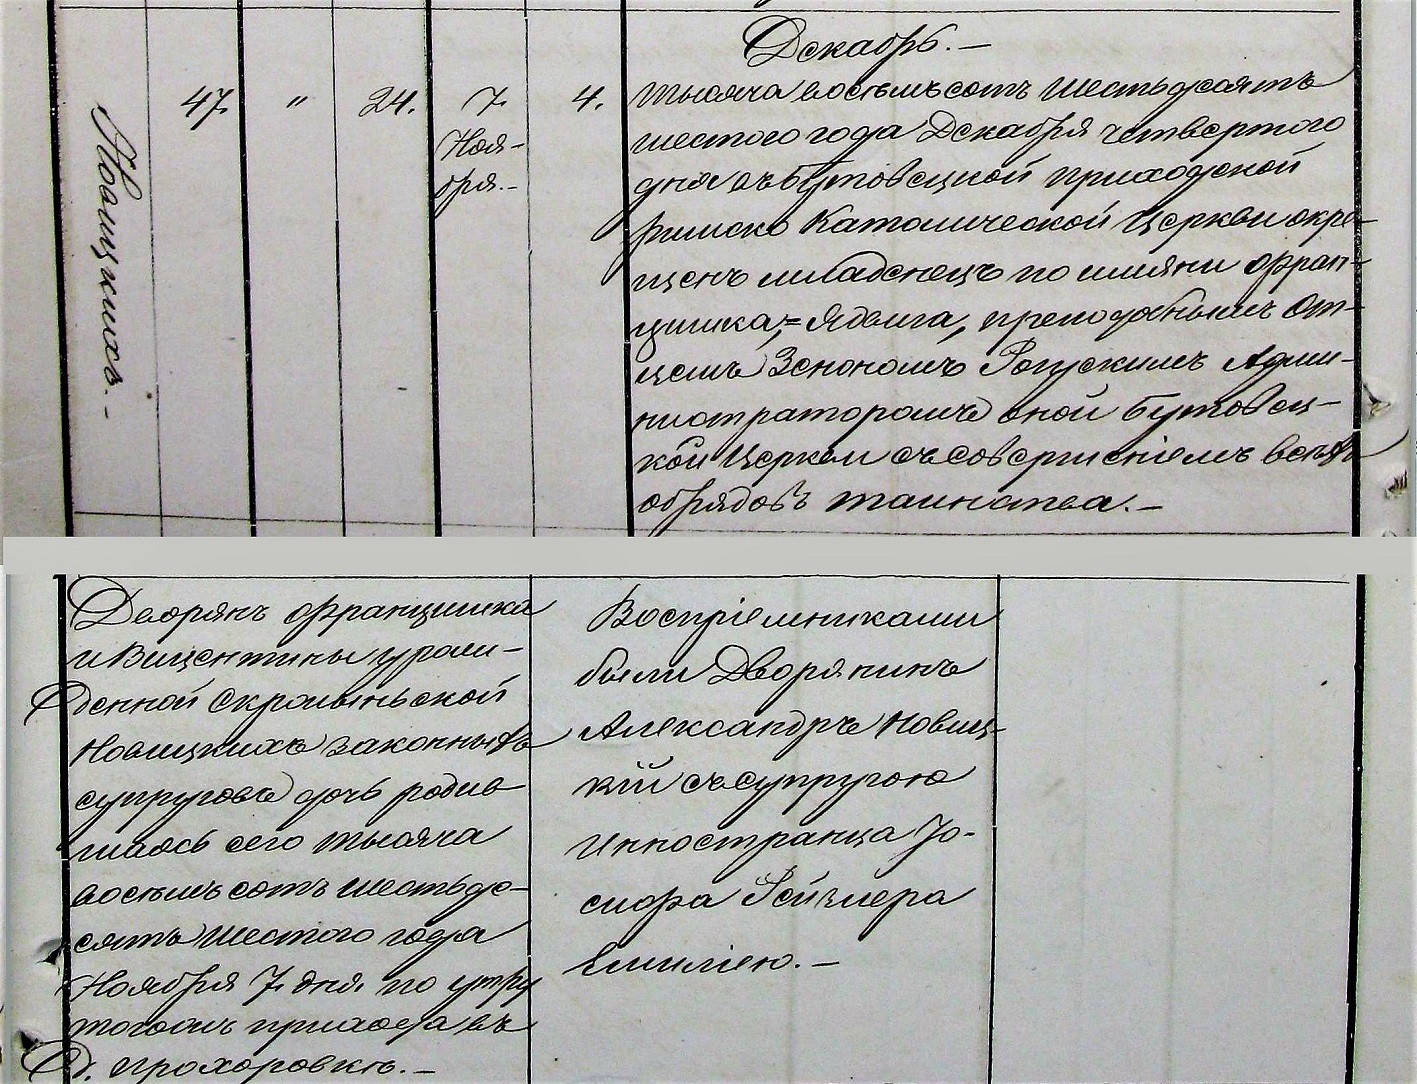 Декабрь. —
Новицкихъ. —
47. " 24. 7. 4.
Ноя-
бря. —
Тысяча восемьсотъ шестьдесятъ
шестого года Декабря четвертого
дня въ Бутовецкой приходской
Римско Католической Церкви окре-
щенъ младенецъ по имяни Фран-
цишка = Ядвига, преподобнымъ От-
цемъ Зенономъ Адми-
нистраторомъ оной Бутовец-
кой Церкви съ совершеніемъ всѣхъ
обрядовъ таинства. —
Дворянъ Францишка
и Вицентины урож-
денной
Новицкихъ законныхъ
супруговъ дочь родив-
шаясь сего тысяча
восемьсотъ шестьде-
сятъ шестого года
Ноября 7. дня по утру
тогожъ прихода въ
д. Прохоровкѣ. —
Воспріемниками
были Дворянинъ
Александръ Новиц-
кій съ супругою
Инностранца Іо-
сифа
Емиліею. —